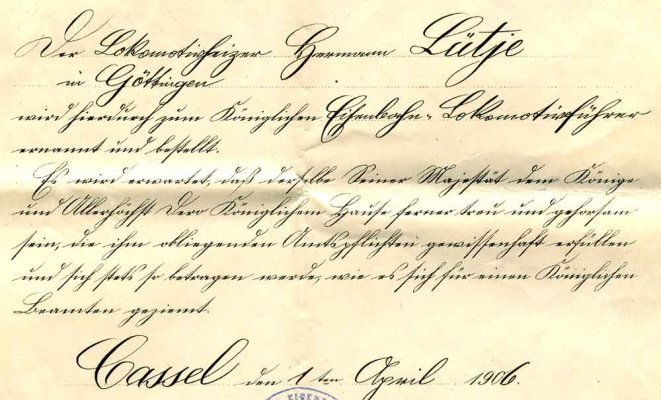 Der Lokomotivheizer Hermann Lütje
in Göttingen
wird hierdurch zum Königlichen Eisenbahn-Lokomotivführer
ernannt und bestellt.
Es wird erwartet, daß derselbe Seiner Majestät dem Könige
und Allerhöchst Dero Königlichem Hause ferner treu und gehorsam
sein, die ihm obliegenden Amtspflichten gewissenhaft erfüllen
und sich stets so betragen werde, wie es sich für einen Königlichen
Beamten geziemt.
Cassel den 1 ten April 1906.
EIGENB